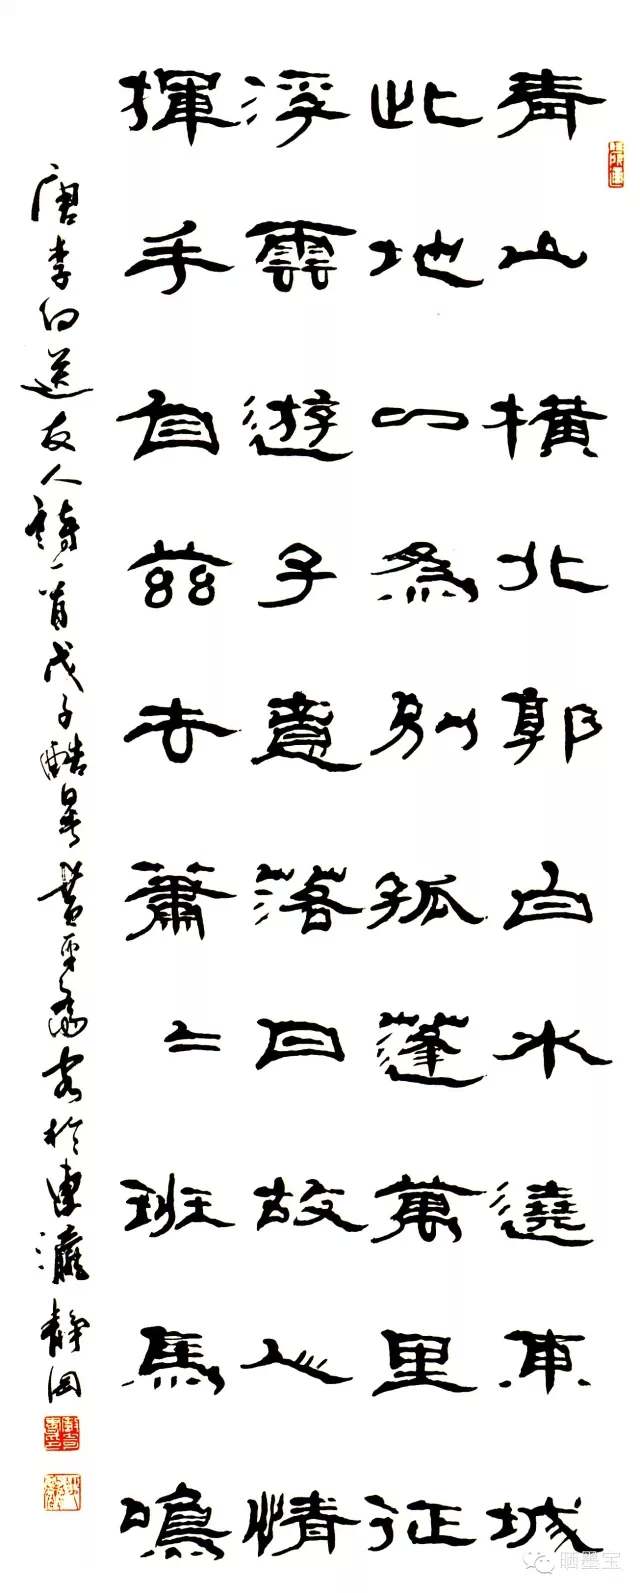 青山橫北郭白水遶東城
此地一為別孤蓬萬里征
浮雲遊子意落日故人情
揮手自茲去蕭〻班馬鳴
唐李白送友人詩一首戊子酷暑
晒墨宝